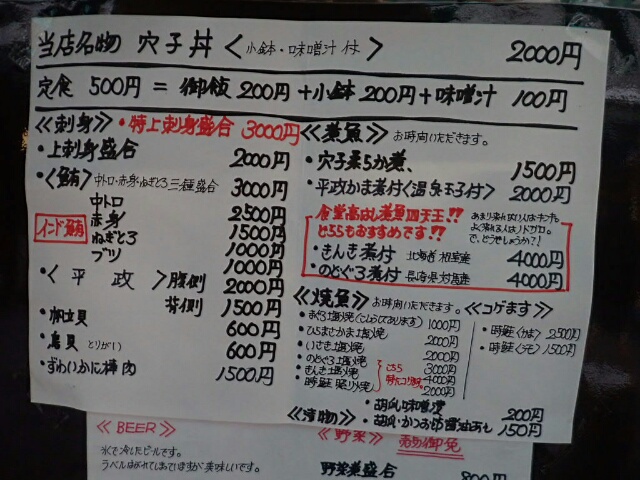 当店名物 穴子丼 〈小鉢・味噌汁 付〉 2000円
定食 500円 = 御飯 200円 + 小鉢 200円 + 味噌汁 100円
≪刺身≫ ・特上刺身盛合 3000円
・上刺身盛合 2000円
・〈鮪〉 中トロ・赤身・ねぎとろ 三種盛合 3000円
中トロ 2500円
インド鮪 赤身 1500円
ねぎとろ 1000円
ブツ 1000円
・〈平政〉 腹側 2000円
背側 1500円
・帆立貝 600円
・鳥貝 とりがい 600円
・ずわいかに棒肉 1500円
≪煮魚≫ お時間いただきます。
・穴子柔らか煮、 1500円
・平政かま煮付〈温泉玉子付〉 2000円
食堂高はし煮魚四天王!!
どちらもおすすめです!!
・きんき煮付 北海道 4000円
・のどぐろ煮付 長崎県対馬産 4000円
≪焼魚≫ お時間いただきます。
・まぐろ塩焼 1000円
・ひらまさかま塩焼 2000円
・いさき塩焼 2000円
・のどぐろ塩焼 3000円
・きんき塩焼 4000円
・時鮭 照り焼 2000円
≪コゲます≫
・時鮭〈かま〉 2500円
・時鮭 1500円
・胡瓜味噌漬 200円
≪漬物≫ ・胡瓜・かつおゆず醤油あし 150円
≪BEER≫
氷で冷したビールです。
ラベルはがれてしまっていますが美味しいです。
≪野菜≫
野菜煮盛合 800円